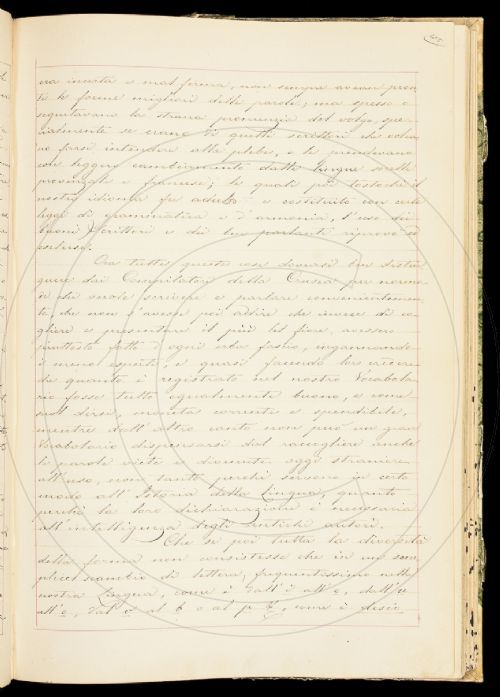 era incerta e mal ferma, non sempre avean pron
te le forme migliori delle parole; ma spesso e
seguitavano la strana pronunzia del volgo, spe
cialmente se erano di quelli scrittori che volea
no farsi intendere alla plebe, o le prendevano
con leggero cambiamento dalle lingue sorelle
provenzale e francese; le quali poi tostochè il
nostro idioma fu adulto e costituito con certe
leggi di grammatica e d'armonia, l'uso dei
buoni scrittori e dei ben parlanti riprovò ed
escluse.
Ora tutte queste cose dovevansi ben distin
guere dai Compilatori della Crusca per norma
di chi vuole scrivere e parlare convenientemen
te, che non s'avesse poi a dire che invece di co
gliere e presentare il più bel fiore, avesser
piuttosto fatto d'ogni erba fascio, ingannando
i meno esperti, e quasi facendo lor credere
che quanto è registrato nel nostro Vocabola
rio fosse tutto egualmente buono, e come
suol dirsi, moneta corrente e spendibile,
mentre dall'altro canto non può un gran
Vocabolario dispensarsi dal raccogliere anche
le parole viete e divenute oggi straniere
all'uso, non tanto perchè servono in certo
modo all'Istoria della Lingua, quanto
perchè la loro dichiarazione è necessaria
all'intelligenza degli antichi autori.
Che se poi tutta la diversità
della forma non consistesse che in un sem
plice scambio di lettera, frequentissimo nella
nostra Lingua, come è dall'i all'e, dall'u
all'o, dal v al b o al p, come è